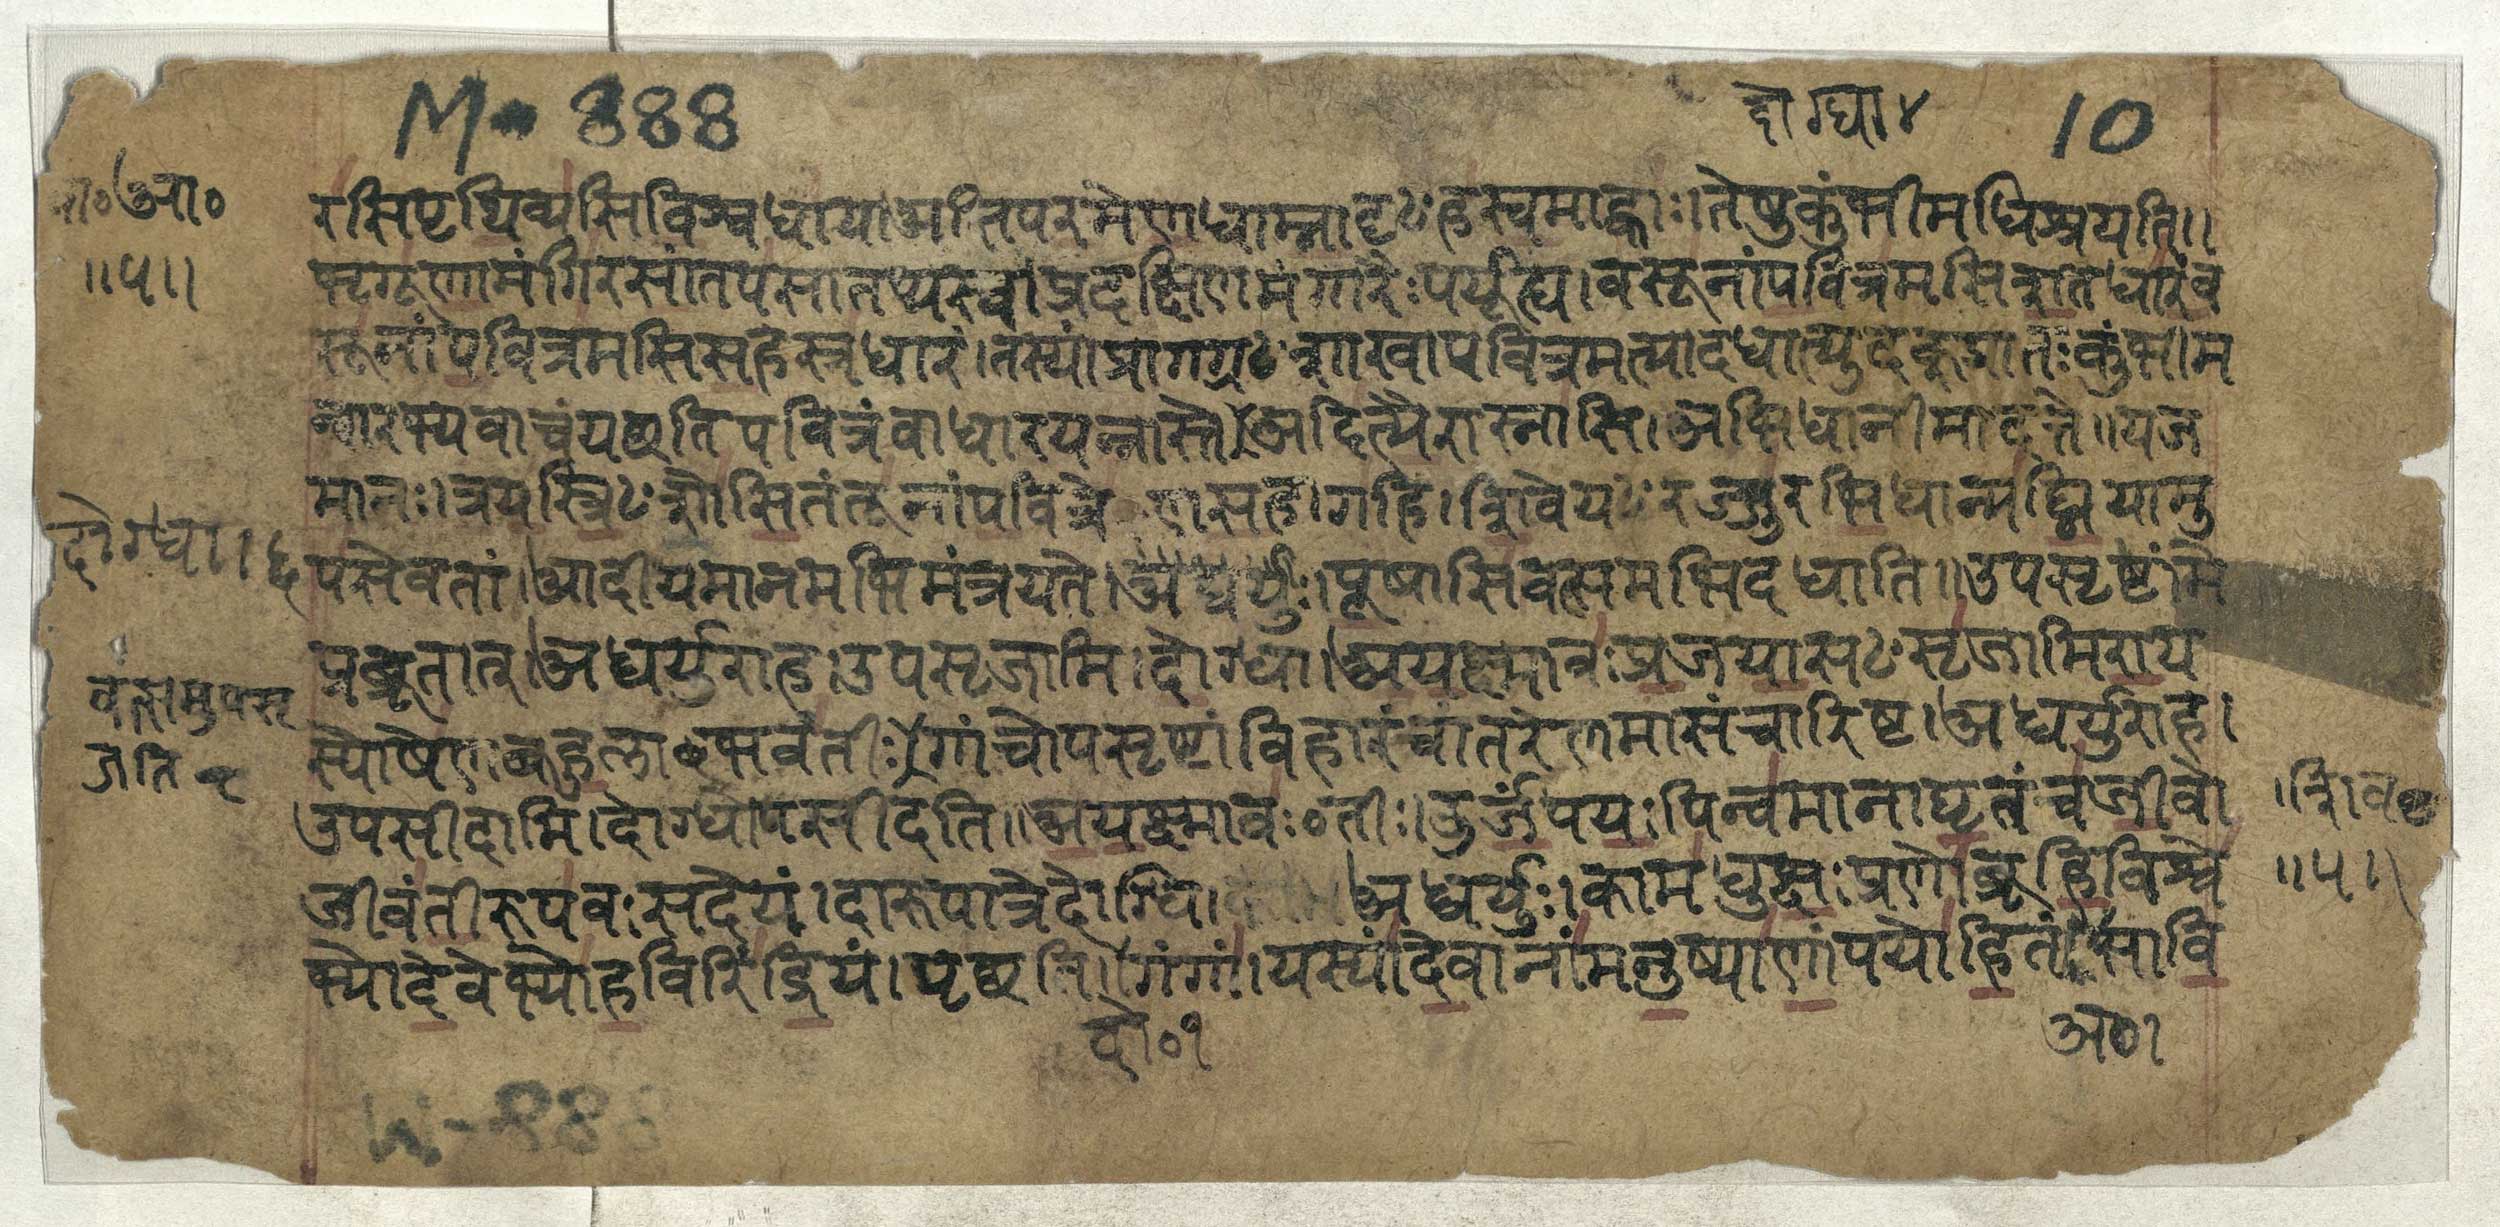 M - 888
दोग्धा ४
10
रसिपृथिव्यसिविश्वधायाअसिपरमेणधाम्नादृꣳहस्वमाह्वाः। तेषुकुंभीमधिश्रयति॥
॥५॥
भृगूणामंगिरसांतपसातप्यस्व। प्रदक्षिणमंगारैःपर्यूह्य। वसूनांपवित्रमसिशतधारंव
सूनांपवित्रमसिसहस्रधारं। तस्यांप्रागग्रꣳशाखापवित्रमत्यादधात्युदक्प्रातःकुंभीम
न्वारभ्यवाचंयच्छतिपवित्रंवाधारयन्नास्ते। अदित्यैरास्नासि। अभिधानीमादत्ते॥ यज
मानः। त्रयस्त्रिꣳशोसितंतूनांपवित्रेणसहागहि। शिवेयꣳरज्जुरभिधान्यघ्नियामु
दोग्धा।
पसेवतां। आदीयमानमभिमंत्रयते। अध्वर्युः। पूषासिवत्समभिदधाति॥ उपसृष्टांमे
प्रब्रूतात्। अध्वर्युराह। उपसृजामि। दोग्धा। अयक्ष्मावःप्रजयासꣳसृजामिराय
वत्समुपसृ
जति
स्पोषेणबहुलाभवंतीः। गांचोपसृष्टांविहारंचांतरेणमासंचारिष्ट। अध्वर्युराह।
उपसीदामि। दोग्धोपसीदति॥ अयक्ष्मावः०तीः। ऊर्जंपयःपिन्वमानाघृतंचजीवो
। शिव०
॥५॥
जीवंतीरुपवःसदेयं। दारुपात्रेदोग्धि। अध्वर्युः। कामधुक्षःप्रणोब्रूहिविश्वे
भ्योदेवेभ्योहविरिंद्रियं। पृच्छति। गंगां। यस्यांदेवानांमनुष्याणांपयोहितं। सावि
दो०१
अ०।
M-888